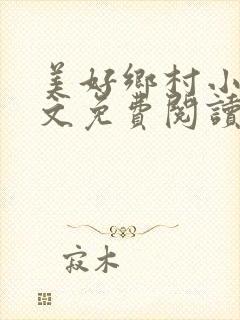 美好鄉村小
文免費閱讀
寂木